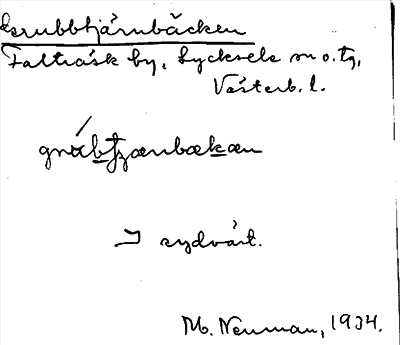 Grubbtjärnbäcken
Falträsk by, Lycksele sn o. tg,
Västerb. l.
grúbtjzænbækæn
I sydväst.
M. Neuman, 1934.